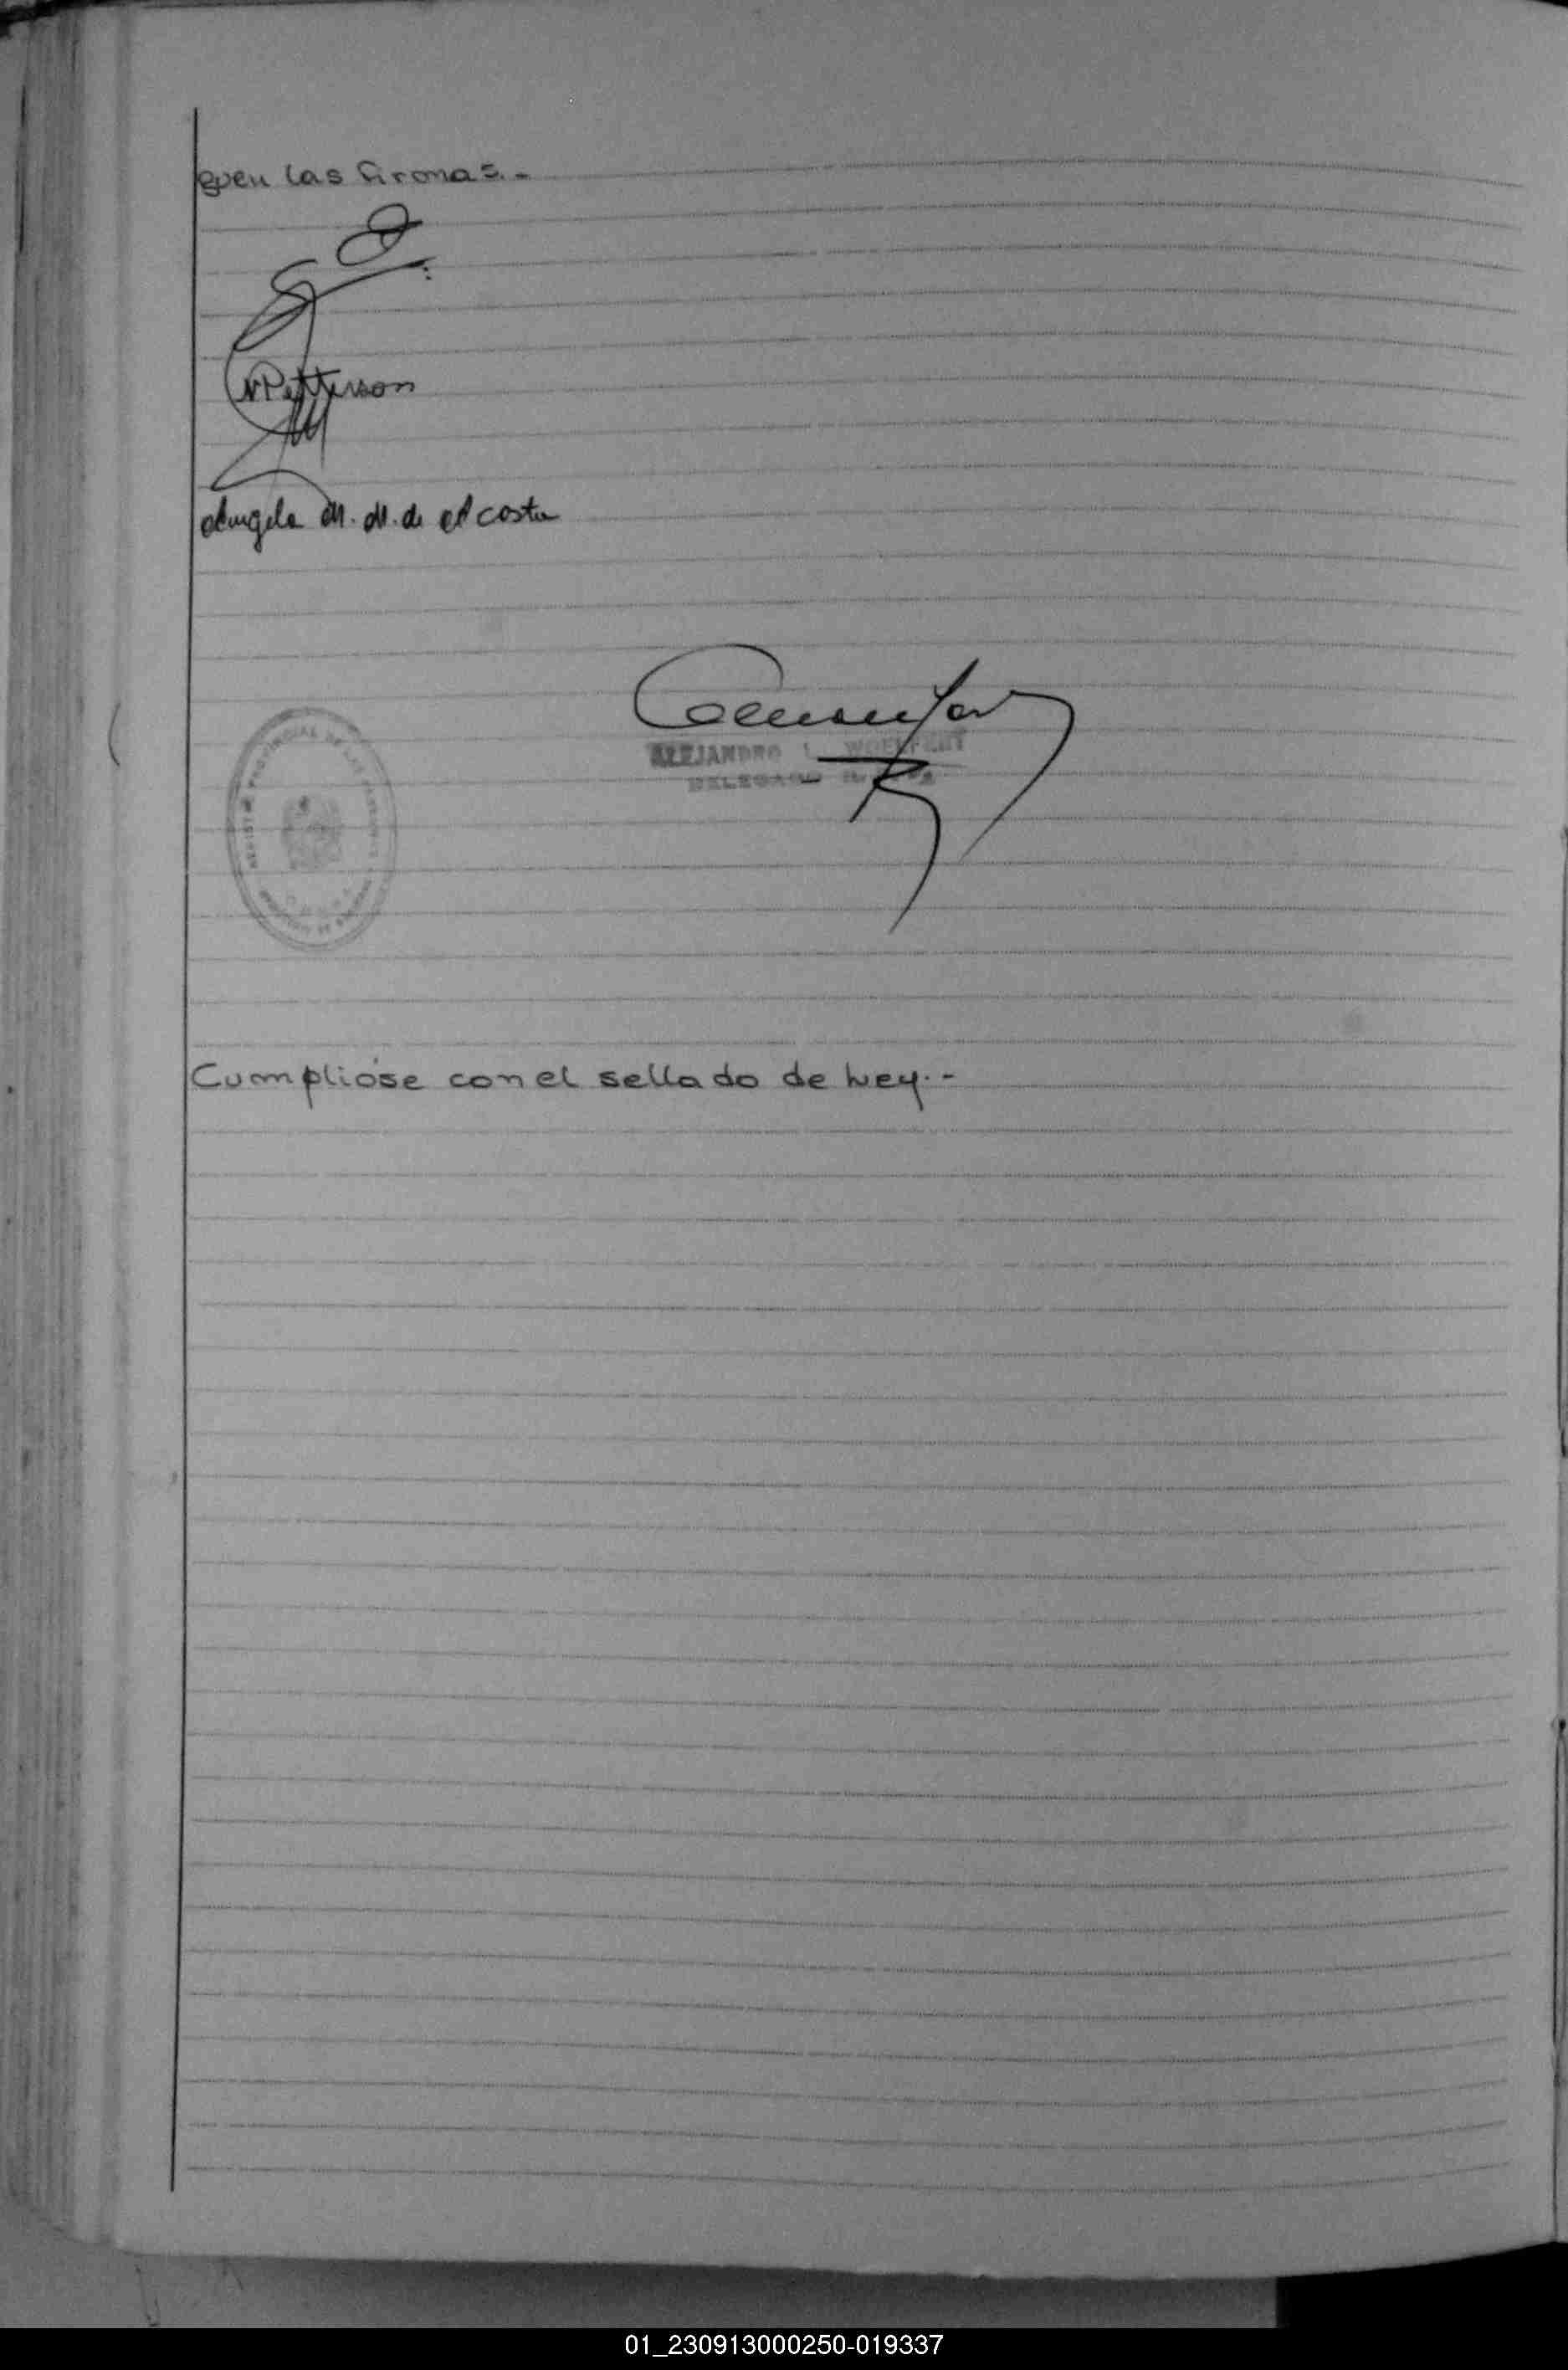 guen las firmas.-
N Petterson
Angela M. M. de Acosta
ALEJANDRO L. WOELFERT
DELEGADO
REGISTRO PROVINCIAL DE LAS PERSONAS
Cumplióse con el sellado de Ley.-
01_230913000250-019337